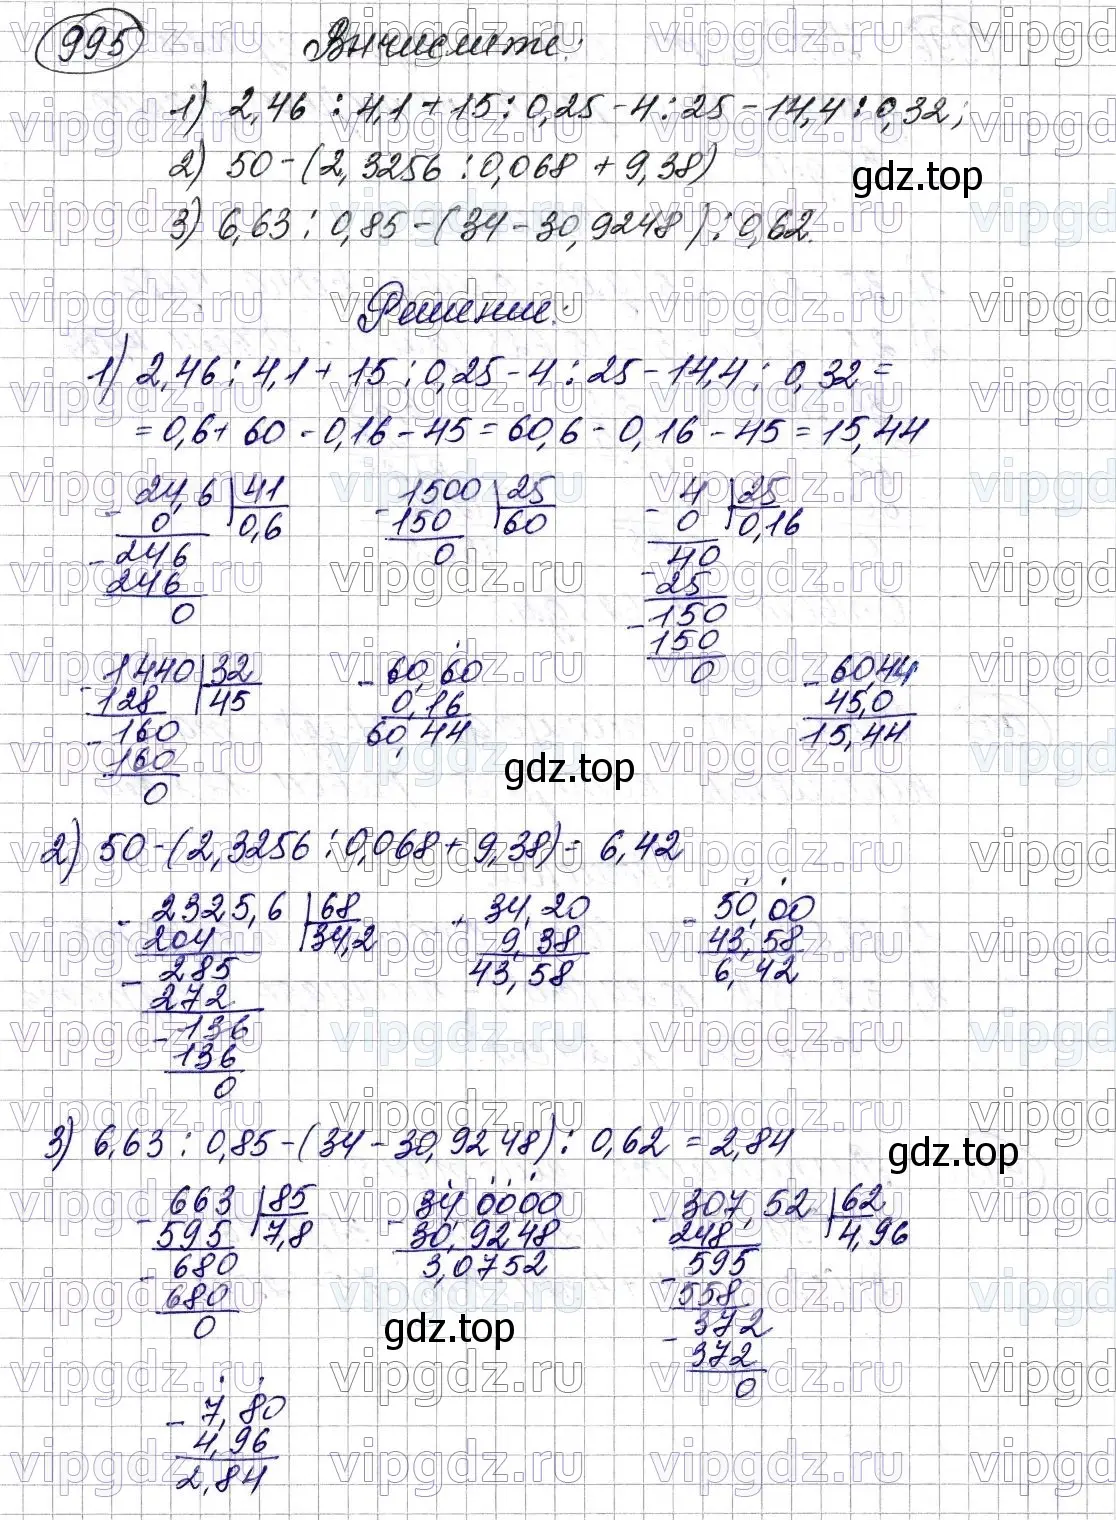 995 Вычислите:
1) 2,46 : 4,1 + 15 : 0,25 - 4 : 25 - 14,4 : 0,32;
2) 50 - (2,3256 : 0,068 + 9,38)
gdz.top
3) 6,63 : 0,85 - (34 - 30,9248) : 0,62.
Решение:
1) 2,46 : 4,1 + 15 : 0,25 - 4 : 25 - 14,4 : 0,32 =
= 0,6 + 60 - 0,16 - 45 = 60,6 - 0,16 - 45 = 15,44
- 24,6 | 41
0 | 0,6
- 246
246
0
- 1500 | 25
150 | 60
0
- 4 | 25
0 | 0,16
- 40
25
- 150
150
0
- 1440 | 32
128 | 45
- 160
160
0
- 60,60
0,16
60,44
- 60,44
45,0
15,44
gdz.top
2) 50 - (2,3256 : 0,068 + 9,38) = 6,42
- 2325,6 | 68
204 | 34,2
- 285
272
- 136
136
0
+ 34,20
9,38
43,58
- 50,00
43,58
6,42
3) 6,63 : 0,85 - (34 - 30,9248) : 0,62 = 2,84
gdz.top
- 663 | 85
595 | 7,8
- 680
680
0
- 34,0000
30,9248
3,0752
- 307,52 | 62
248 | 4,96
- 595
558
- 372
372
0
gdz.top
- 7,80
4,96
2,84
vipgdz.ru